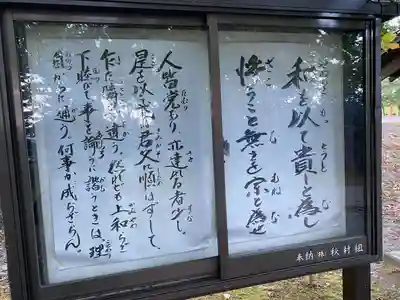 和を以て貴しと為し
忤うこと無きを宗と為せ
人皆党あり、亦達る者少し。
是を以て或は君父に順はずして、
乍た隣里に違う。然れども上和らぎ
下睦びて事を論うに諧うときは、理
自からに通う。何事か成らざらん。
奉納 ㈱ 秋村組